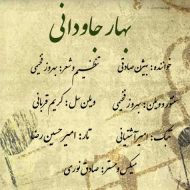 بهار جاودانی
خواننده: بیژن صادقی
تنظیم و شعر: بهروز فخیمی
سنتور و ویلن: بهروز فخیمی
ویلن سل: کریم قربانی
تمبک: امیر آشتیانی
تار: امیرحسین رضا
میکس و مستر: صادق نوری